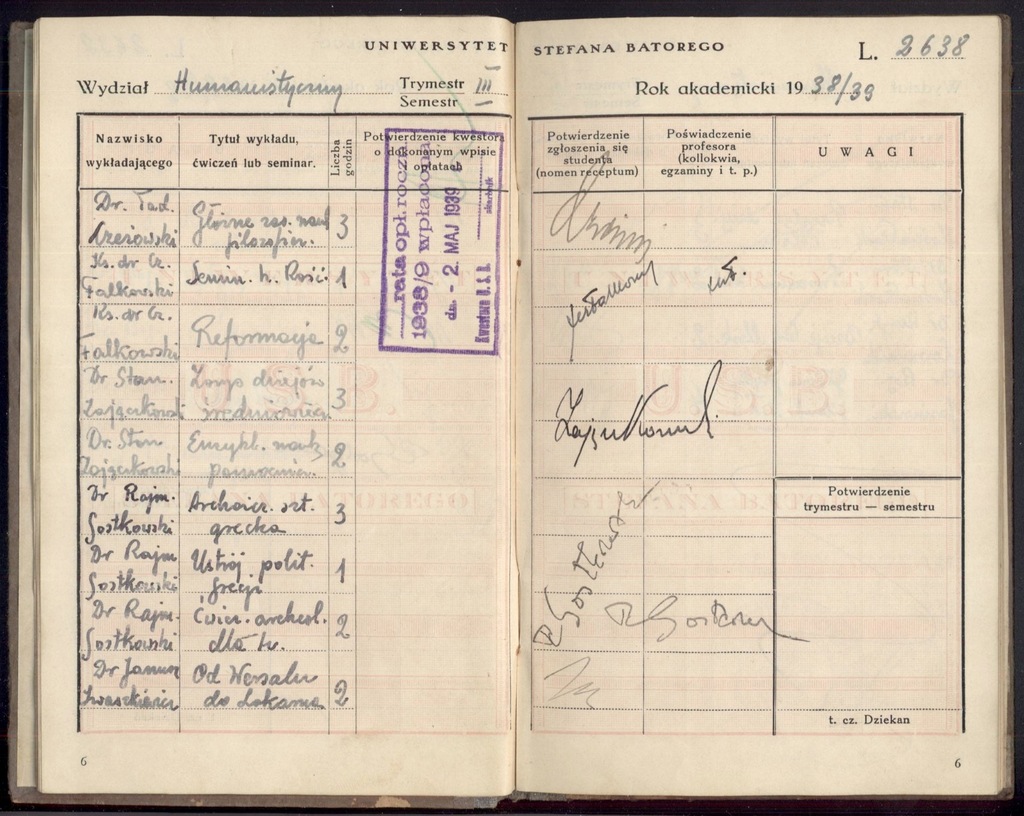 UNIWERSYTET STEFANA BATOREGO
L. 2638
Wydział Humanistyczny
Trymestr III
Semestr —
Rok akademicki 1938/39
Nazwisko wykładającego
Tytuł wykładu, ćwiczeń lub seminar.
Liczba godzin
Potwierdzenie kwestora o dokonanym wpisie i opłatach
Potwierdzenie zgłoszenia się studenta (nomen receptum)
Poświadczenie profesora (kollokwia, egzaminy i t. p.)
UWAGI
rata opł. roczn.
1938/9 wpłacona
dn. - 2. MAJ 1939
skarbnik
Kwestura U. S. B.
Dr. Tad. Czeżowski
Główne zag. nauk filozoficz. 3
Ks. dr Cz. Falkowski
Semin. h. Kość. 1
Ks. dr Cz. Falkowski
Reformacja 2
Dr Stan. Zajączkowski
Zarys dziejów średniowiecz. 3
Dr. Stan Zajączkowski
Encykl. nauk pomocnicz. 2
Dr Rajm. Gostkowski
Archaicz. szt. grecka 3
Dr Rajm Gostkowski
Ustrój polit. Grecji 1
Dr Rajm. Gostkowski
Ćwicz. archeol. dla hi. 2
Dr Janusz Iwaszkiewicz
Od Wersalu do Lokarna 2
Zajączkowski
R Gostkowski
R Gostkowski
Potwierdzenie
trymestru — semestru
t. cz. Dziekan
6
6